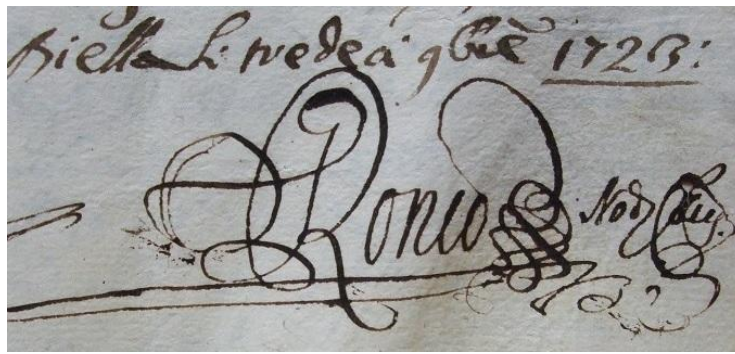 Biella li tredeci 9bre 1723:
Ronco Nod